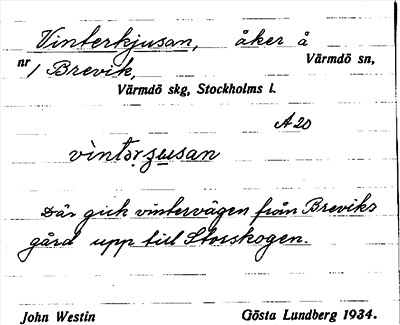 Vinterkjusan, åker å
nr 1 Brevik, Värmdö sn,
Värmdö skg, Stockholms l.
A 20
vìntərʒusan
Där gick vintervägen från Breviks
gård upp till Storskogen.
John Westin Gösta Lundberg 1934.